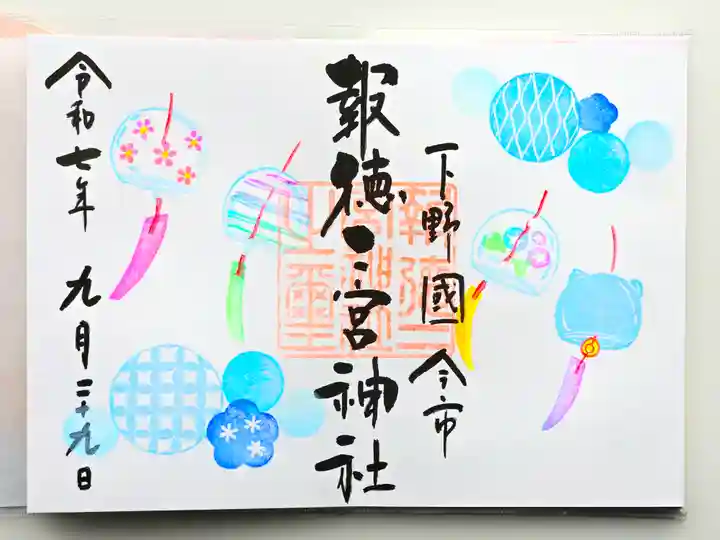 下野國 今市
報徳二宮神社
令和七年 九月二十九日